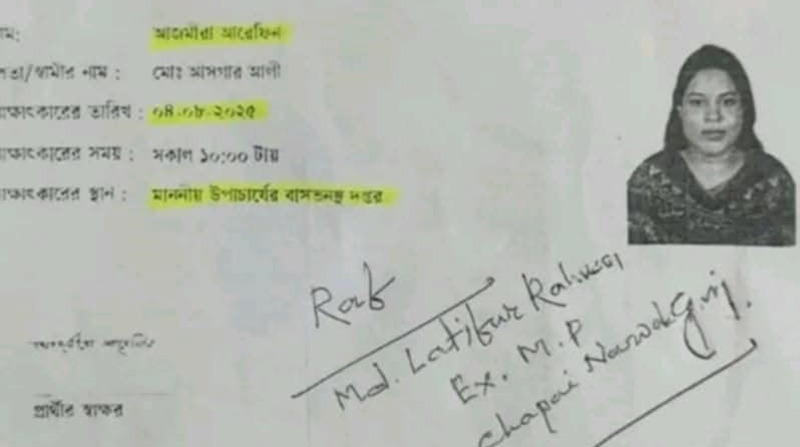 নাম:
আজমীরা আরেফিন
পিতা/স্বামীর নাম : মোঃ আসগার আলী
সাক্ষাৎকারের তারিখ : ০৪.০৮.২০২৫
সাক্ষাৎকারের সময় : সকাল ১০:০০ টায়
সাক্ষাৎকারের স্থান : মাননীয় উপাচার্যের বাসভবনস্থ দপ্তর
Md. Latifur Rahman
Ex. M.P
Chapai Nawabgonj.
প্রার্থীর স্বাক্ষর